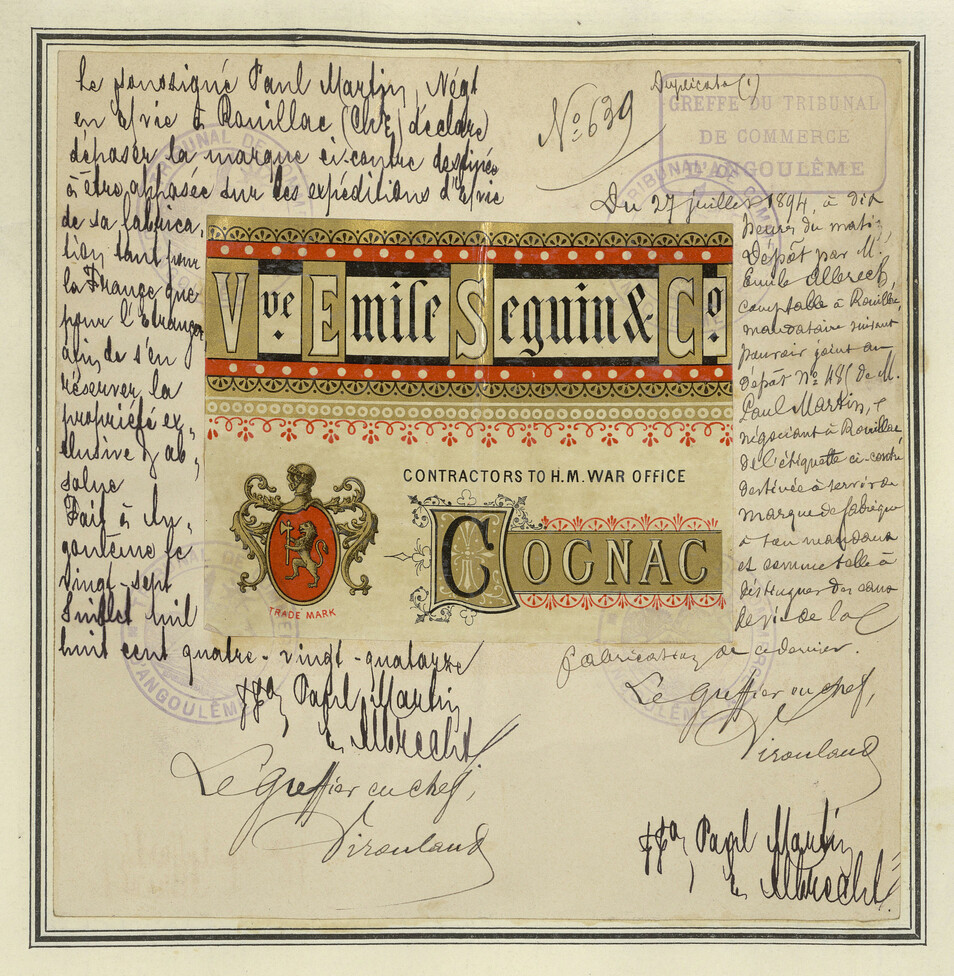 Le soussigné Paul Martin, Négt
en e/vie à Rouillac (Chte) déclare
déposer la marque ci-contre destinée
à être apposée sur des expéditions d'e/vie
de sa fabrica-
tion tant pour
la France que
pour l'Etranger
afin de s'en
réserver la
propriété ex-
clusive & ab-
solue
Fait à An-
goulême le
vingt-sept
Juillet mil
huit cent quatre-vingt-quatorze
Paul Martin
Albrecht
Le Greffier en chef,
Duplicata (1)
No 639
GREFFE DU TRIBUNAL
DE COMMERCE
ANGOULÊME
Du 27 juillet 1894, à dix
heures du matin,
Dépôt par M.
Emile Albrech,
comptable à Rouillac,
mandataire suivant
pouvoir joint au
dépôt No 485 de M.
Paul Martin,
négociant à Rouillac
de l'étiquette ci-contre
destinée à servir de
marque de fabrique
à son mandant
et comme telle à
distinguer des eaux
de vie de la
fabrication de ce dernier.
Le Greffier en chef,
Paul Martin
Albrecht
Vve. Emile Seguin & Co.
CONTRACTORS TO H.M. WAR OFFICE
COGNAC
TRADE MARK
TRIBUNAL DE COM
ANGOULÊME